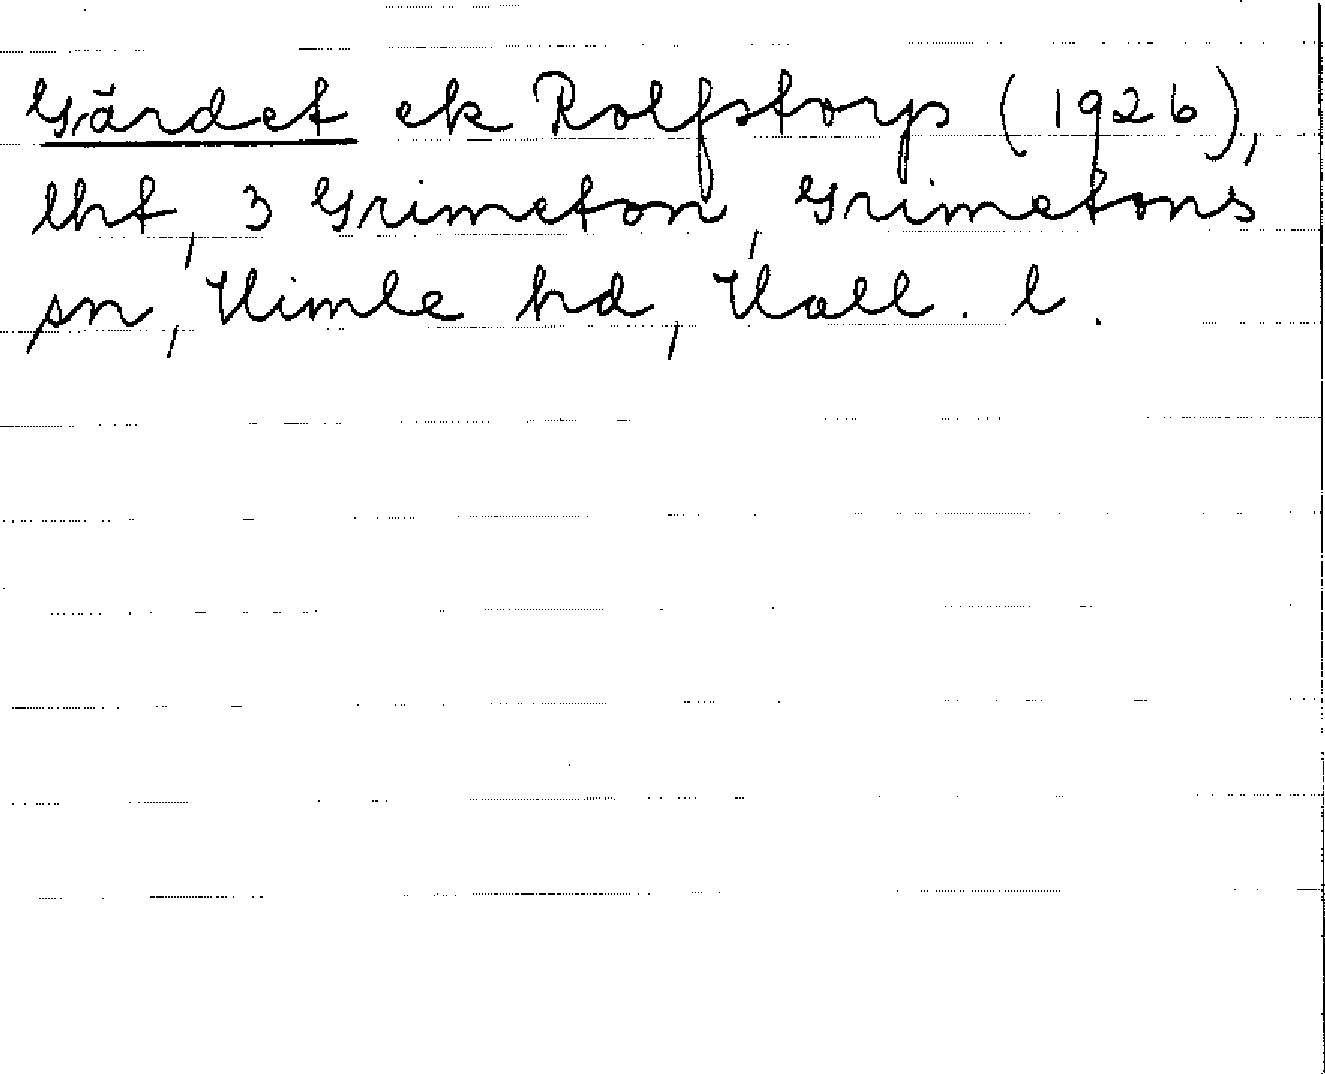 Gärdet ek Rolfstorps (1926),
lht, 3 Grimeton, Grimetons
sn, Himle hd, Hall. l.